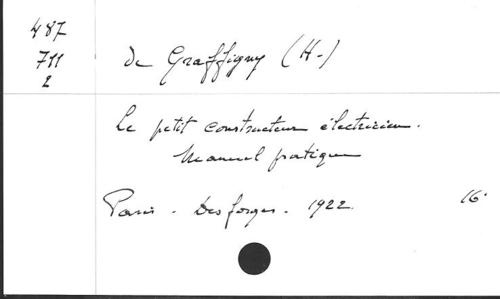 487
711
2
de Graffigny (H-)
Le petit constructeur électricien.
Manuel pratique
Paris - Desforges - 1922 16°